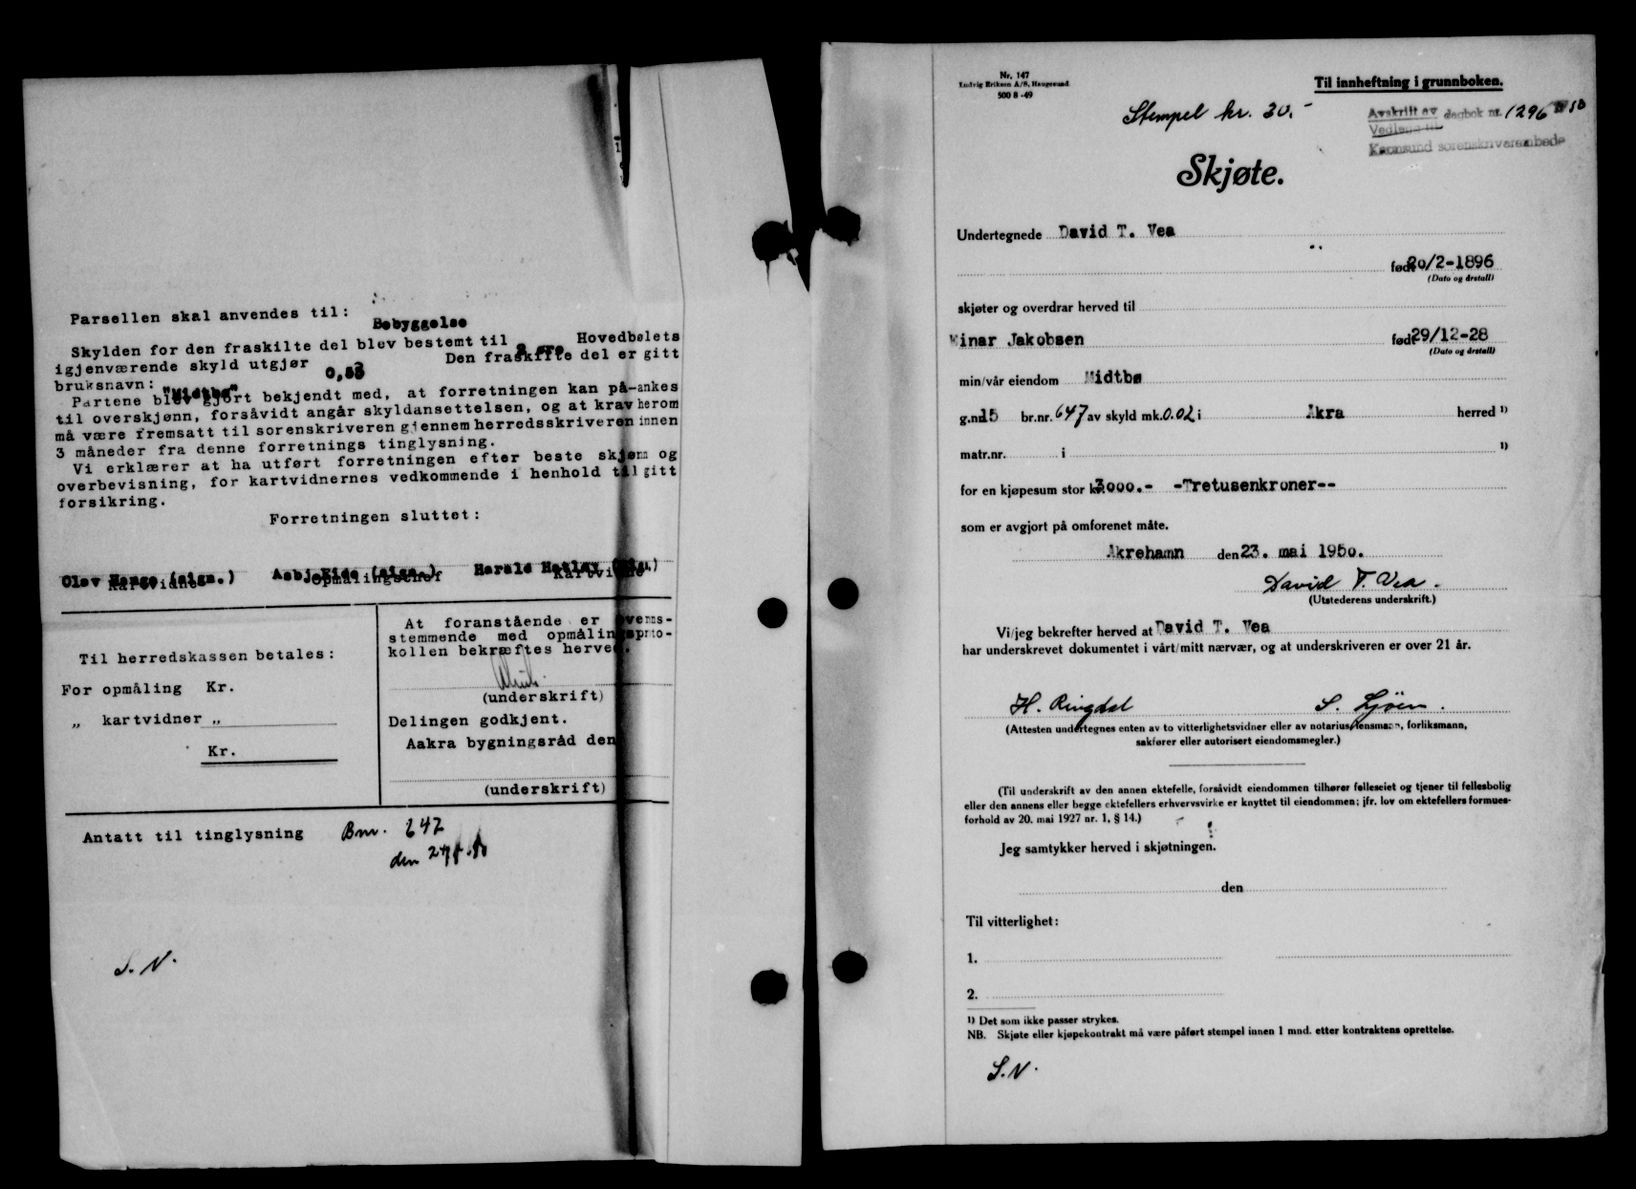 Parsellen skal anvendes til:
Bebyggelse
Skylden for den fraskilte del blev bestemt til 2 øre Hovedbølets
igjenværende skyld utgjør 0,53 Den fraskilte del er gitt
bruksnavn: "Midtbø"
Partene blev gjort bekjendt med, at forretningen kan på-ankes
til overskjønn, forsåvidt angår skyldansettelsen, og at krav herom
må være fremsatt til sorenskriveren gjennem herredsskriveren innen
3 måneder fra denne forretnings tinglysning.
Vi erklærer at ha utført forretningen efter beste skjønn og
overbevisning, for kartvidnernes vedkommende i henhold til gitt
forsikring.
Forretningen sluttet:
Olav (sign.) Asbj. Eide (sign.) Harald
Kartvidne Opmålingschef Kartvidne
At foranstående er overens-
stemmende med opmålingsproto-
kollen bekræftes herved.
(underskrift)
Til herredskassen betales:
For opmåling Kr.
„ kartvidner „
Kr.
Delingen godkjent.
Aakra bygningsråd den
(underskrift)
Antatt til tinglysning Bnr. 647
den
S.N.
Nr. 147
Ludvig Eriksen A/S, Haugesund
500 8 -49
Til innheftning i grunnboken.
Stempel kr. 30.-
Avskrift av dagbok nr. 1296 1950
Vedlegg til
Karmsund sorenskriverembede
Skjøte.
Undertegnede David T. Vea
født 20/2-1896
(Dato og årstall)
skjøter og overdrar herved til
Einar Jakobsen født 29/12-28
(Dato og årstall)
min/vår eiendom Midtbø
g.nr. 15 br.nr. 647 av skyld mk. 0.02 i Åkra herred 1)
matr.nr. i 1)
for en kjøpesum stor kr. 3000.- -Tretusenkroner--
som er avgjort på omforenet måte.
Åkrehamn den 23. mai 1950.
David T. Vea.
(Utstederens underskrift.)
Vi/jeg bekrefter herved at David T. Vea
har underskrevet dokumentet i vårt/mitt nærvær, og at underskriveren er over 21 år.
H. Ringdal S. Ljöen.
(Attesten undertegnes enten av to vitterlighetsvidner eller av notarius, lensmann, forliksmann,
sakfører eller autorisert eiendomsmegler.)
(Til underskrift av den annen ektefelle, forsåvidt eiendommen tilhører felleseiet og tjener til fellesbolig
eller den annens eller begge ektefellers erhvervsvirke er knyttet til eiendommen; jfr. lov om ektefellers formues-
forhold av 20. mai 1927 nr. 1, § 14.)
Jeg samtykker herved i skjøtningen.
den
Til vitterlighet:
1.
2.
1) Det som ikke passer strykes.
NB. Skjøte eller kjøpekontrakt må være påført stempel innen 1 mnd. etter kontraktens oprettelse.
S.N.